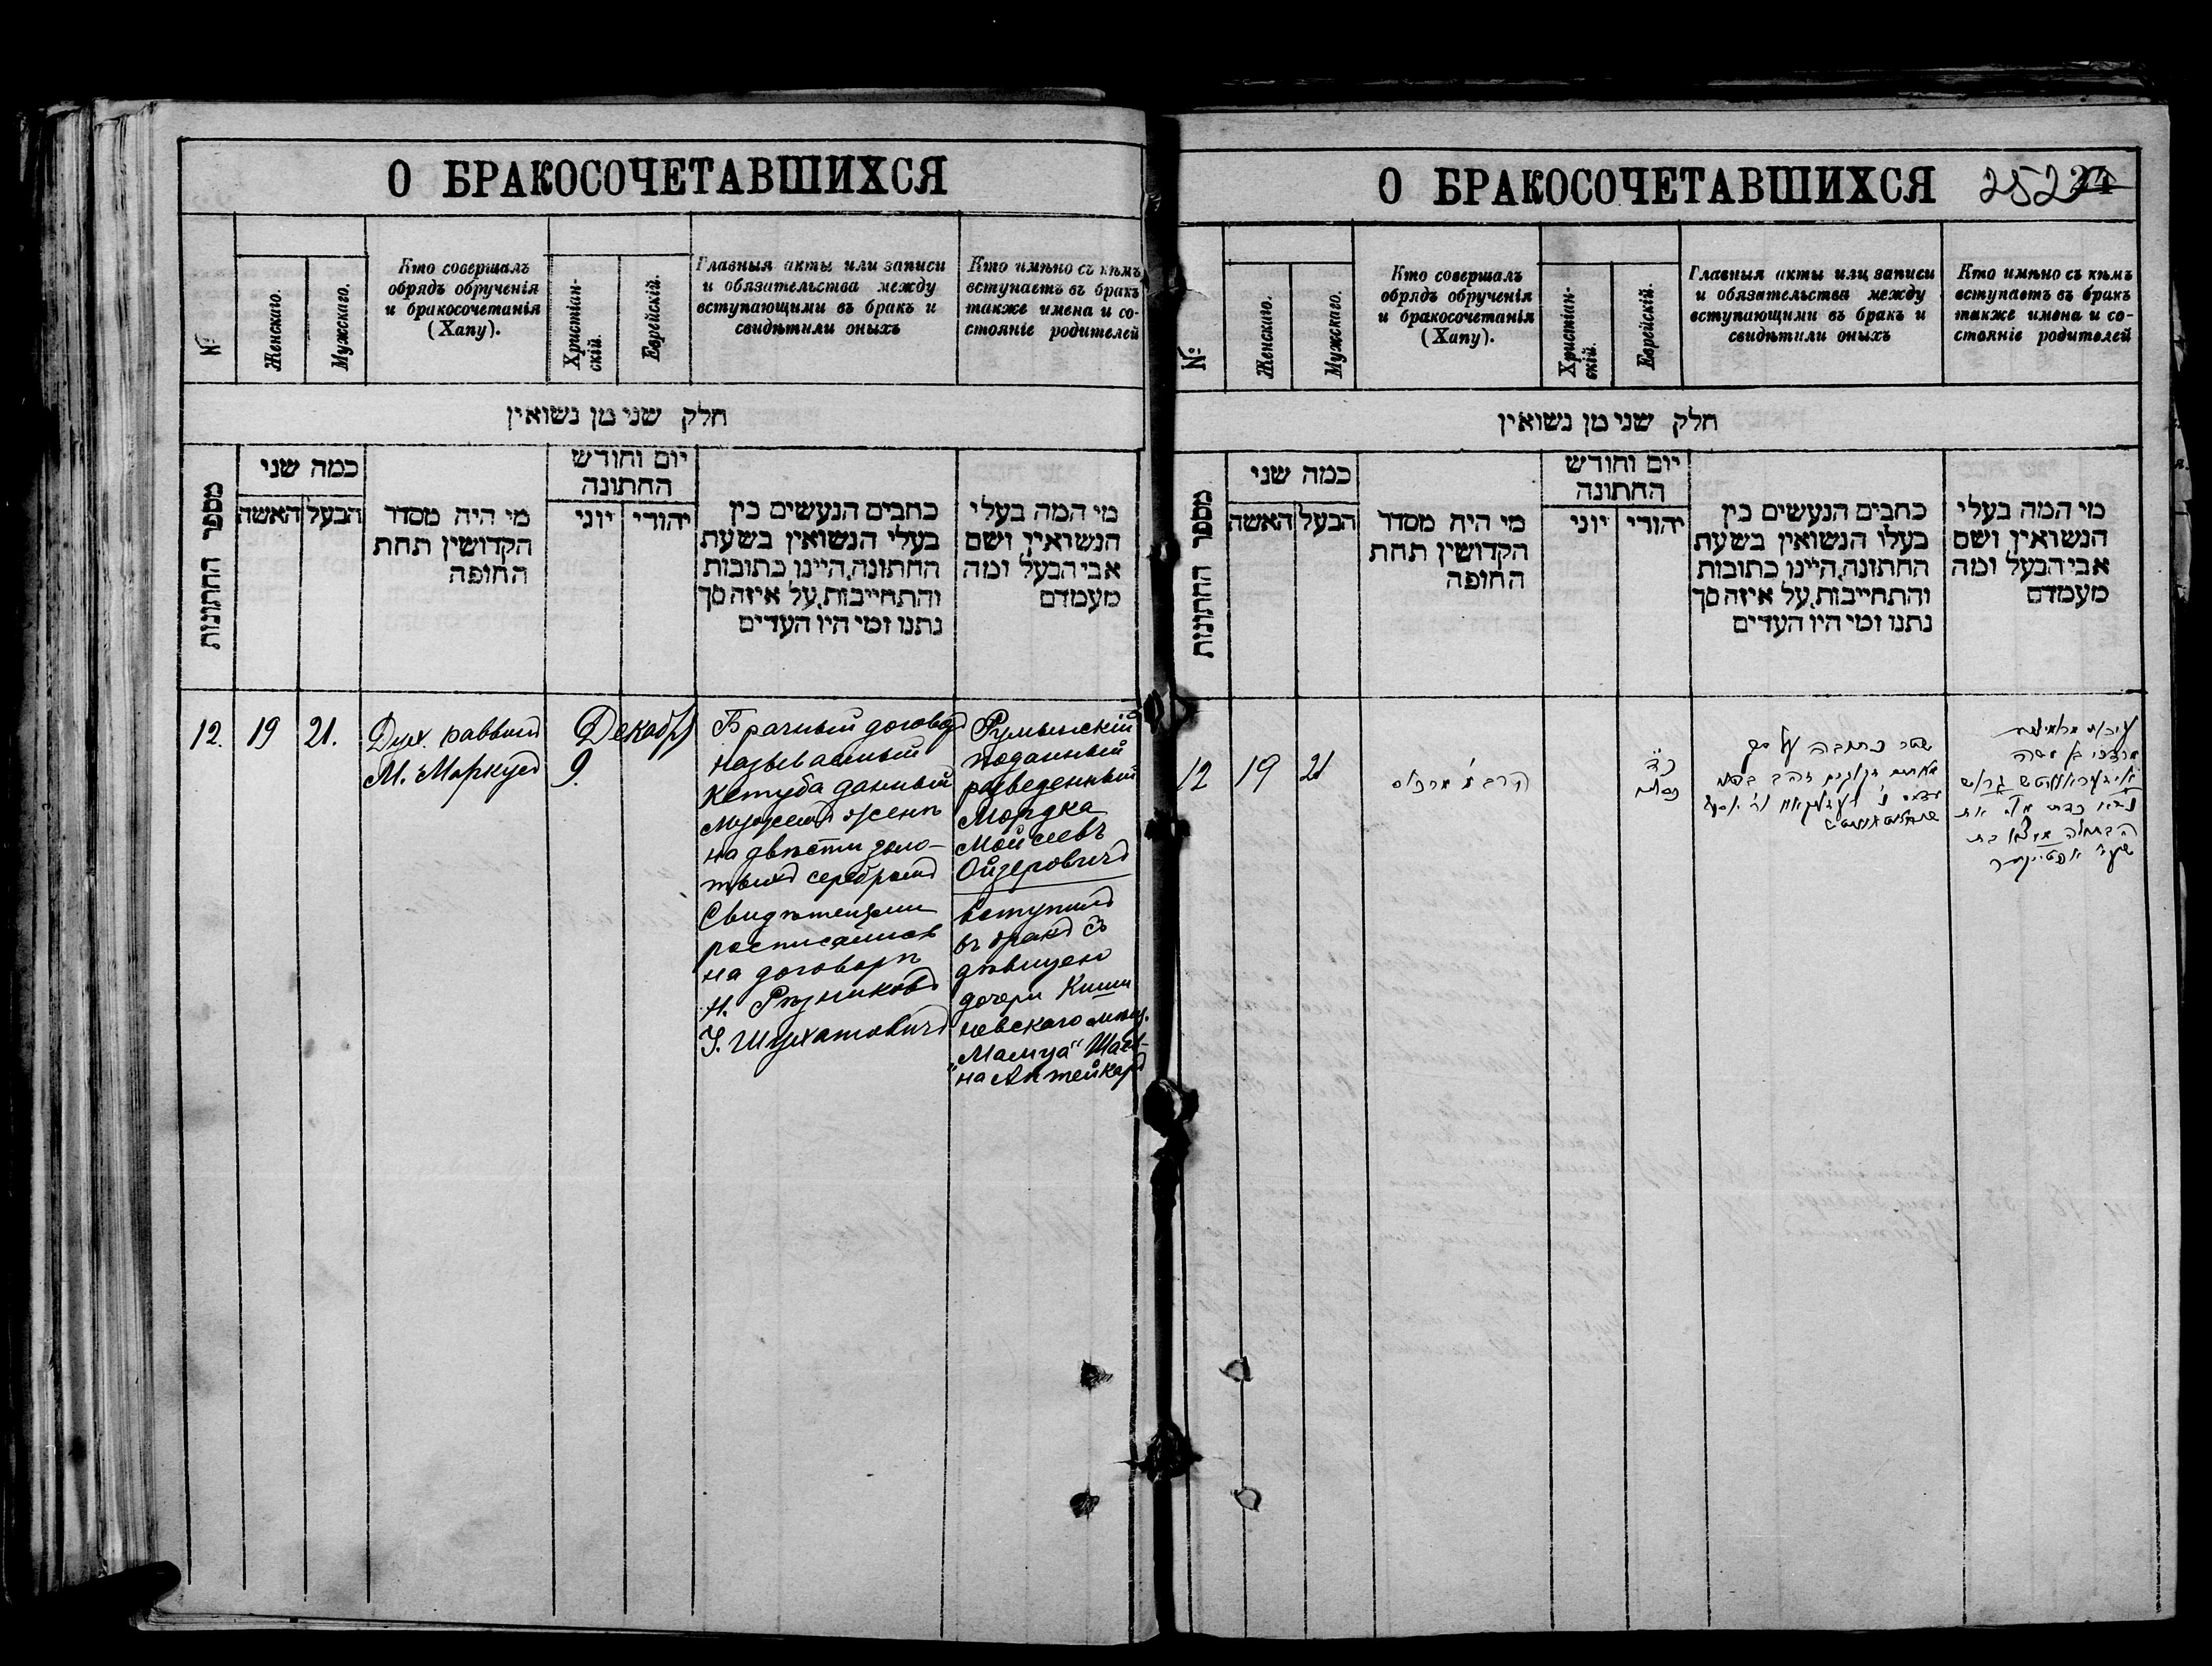 О БРАКОСОЧЕТАВШИХСЯ
№
Женскаго.
Мужскаго.
Кто совершалъ
обрядъ обрученія
и бракосочетанія
(Хапу).
Христіан-
скій.
Еврейскій.
Главныя акты или записи
и обязательства между
вступающими въ бракъ и
свидѣтили оныхъ
Кто имѣно съ кѣмъ
вступаетъ въ бракъ
также имена и со-
стояніе родителей
חלק שני מן נשואין
מספר החתונות
כמה שני
האשה
הבעל
מי היה מסדר
הקדושין תחת
החופה
יום וחודש
החתונה
יוני
יהודי
כתבים הנעשים בין
בעלי הנשואין בשעת
החתונה, היינו כתובות
והתחייבות, על איזה סך
נתנו ומי היו העדים
מי המה בעלי
הנשואין ושם
אבי הבעל ומה
מעמדם
12.
19
21.
Дух. раввинъ
М. Маркусъ
Декабр
9.
Брачный договоръ
называемый
Кетуба данный
мужемъ женѣ
на двѣсти золо-
тыхъ серебромъ
Свидѣтелями
росписались
на договорѣ
Н. Рѣзниковъ
У. Шухатовичъ
Румынскій
поданный
разведенный
Мордка
Мойсеевъ
Ойзеровичъ
вступилъ
въ бракъ съ
дѣвицею
дочери Киши
невскаго мѣщ.
"Малца" Шаев-
на Аптейкаръ
О БРАКОСОЧЕТАВШИХСЯ
252
24
№
Женскаго.
Мужскаго.
Кто совершалъ
обрядъ обрученія
и бракосочетанія
(Хапу).
Христіан-
скій.
Еврейскій.
Главныя акты или записи
и обязательства между
вступающими въ бракъ и
свидѣтили оныхъ
Кто имѣно съ кѣмъ
вступаетъ въ бракъ
также имена и со-
стояніе родителей
חלק שני מן נשואין
מספר החתונות
כמה שני
האשה
הבעל
מי היה מסדר
הקדושין תחת
החופה
יום וחודש
החתונה
יוני
יהודי
כתבים הנעשים בין
בעלי הנשואין בשעת
החתונה, היינו כתובות
והתחייבות, על איזה סך
נתנו ומי היו העדים
מי המה בעלי
הנשואין ושם
אבי הבעל ומה
מעמדם
12
19
21
הרב מ' מרכוס
כ"ד
כסלו
שטר כתובה על סך
מאתים זהב בכסף
מרדכי בן משה
גרוש
נשא כדת את
הבתולה מלצא בת